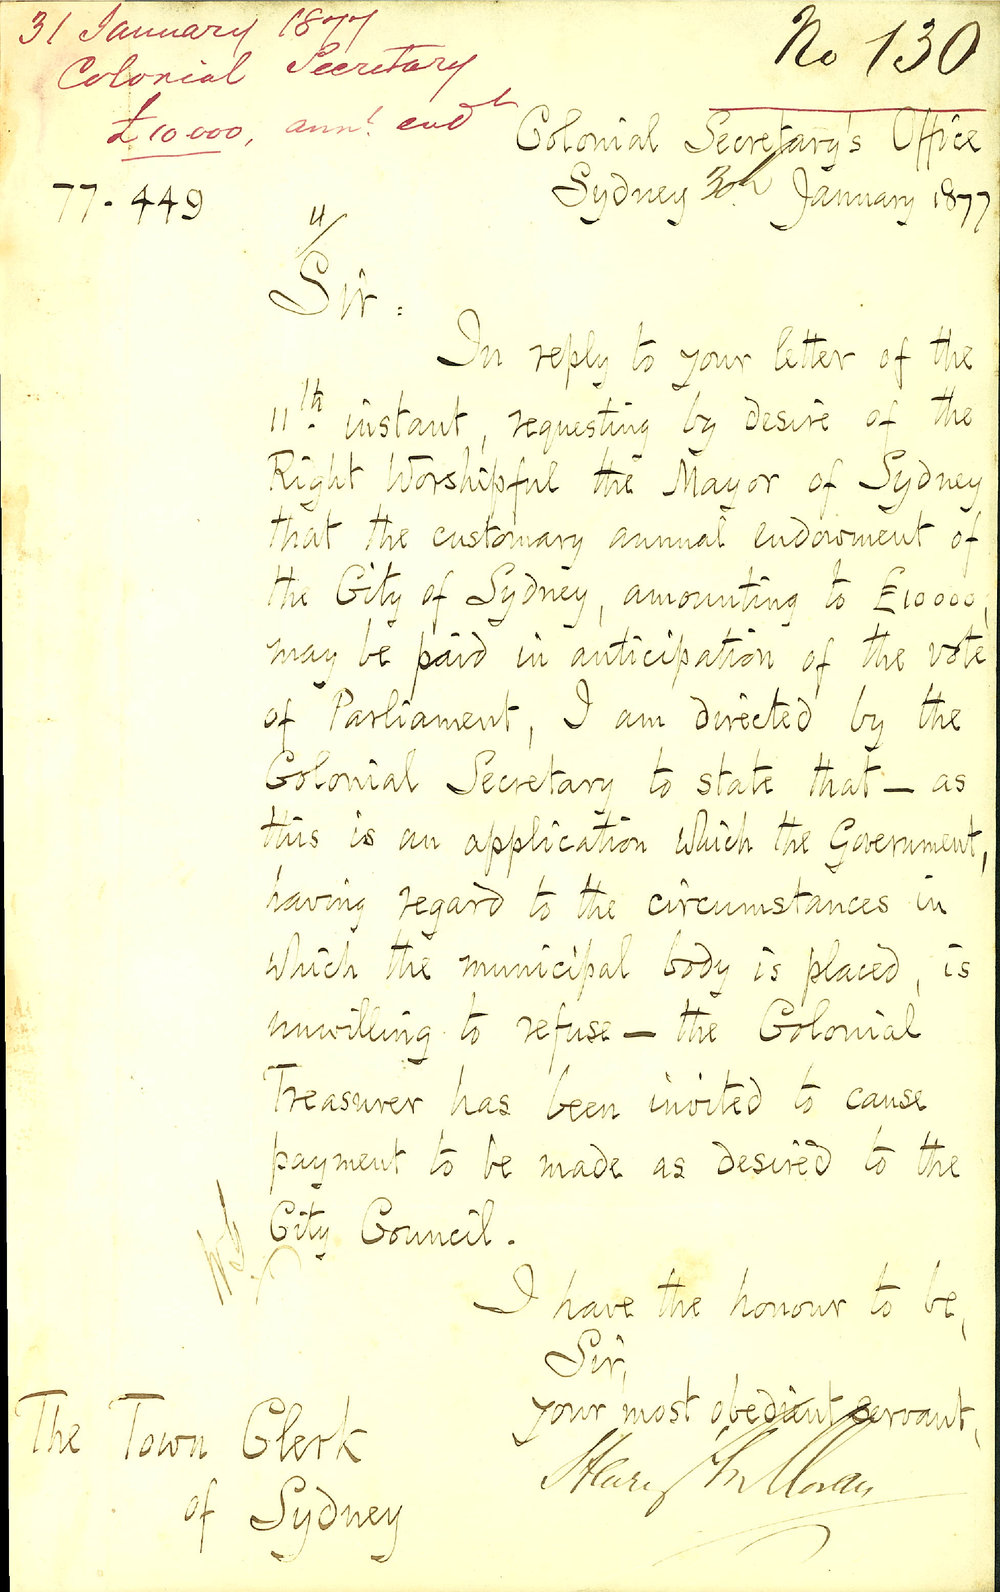 31 January 1877
Colonial Secretary
£10 000, annl. endt
No 130
Colonial Secretary's Office
Sydney 30th January 1877
77-449
Sir:
In reply to your letter of the
11th. instant, requesting by desire of the
Right Worshipful the Mayor of Sydney
that the customary annual endowment of
the City of Sydney, amounting to £10 000,
may be paid in anticipation of the vote
of Parliament, I am directed by the
Colonial Secretary to state that — as
this is an application which the Government,
having regard to the circumstances in
which the municipal body is placed, is
unwilling to refuse — the Colonial
Treasurer has been invited to cause
payment to be made as desired to the
City Council.
I have the honour to be,
Sir,
your most obedient servant,
Henry
The Town Clerk
of Sydney